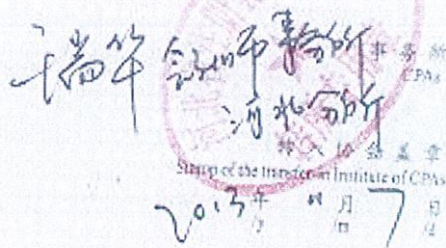 瑞华会计师事务所
事务所
CPAs
河北分所
转入协会盖章
Stamp of the transfer-in Institute of CPAs
2013年 月7日
/y /m /d